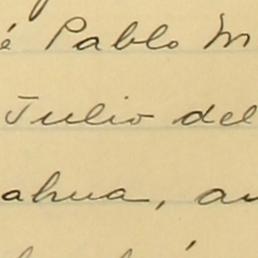 é Pablo M
Julio del
ahua, au